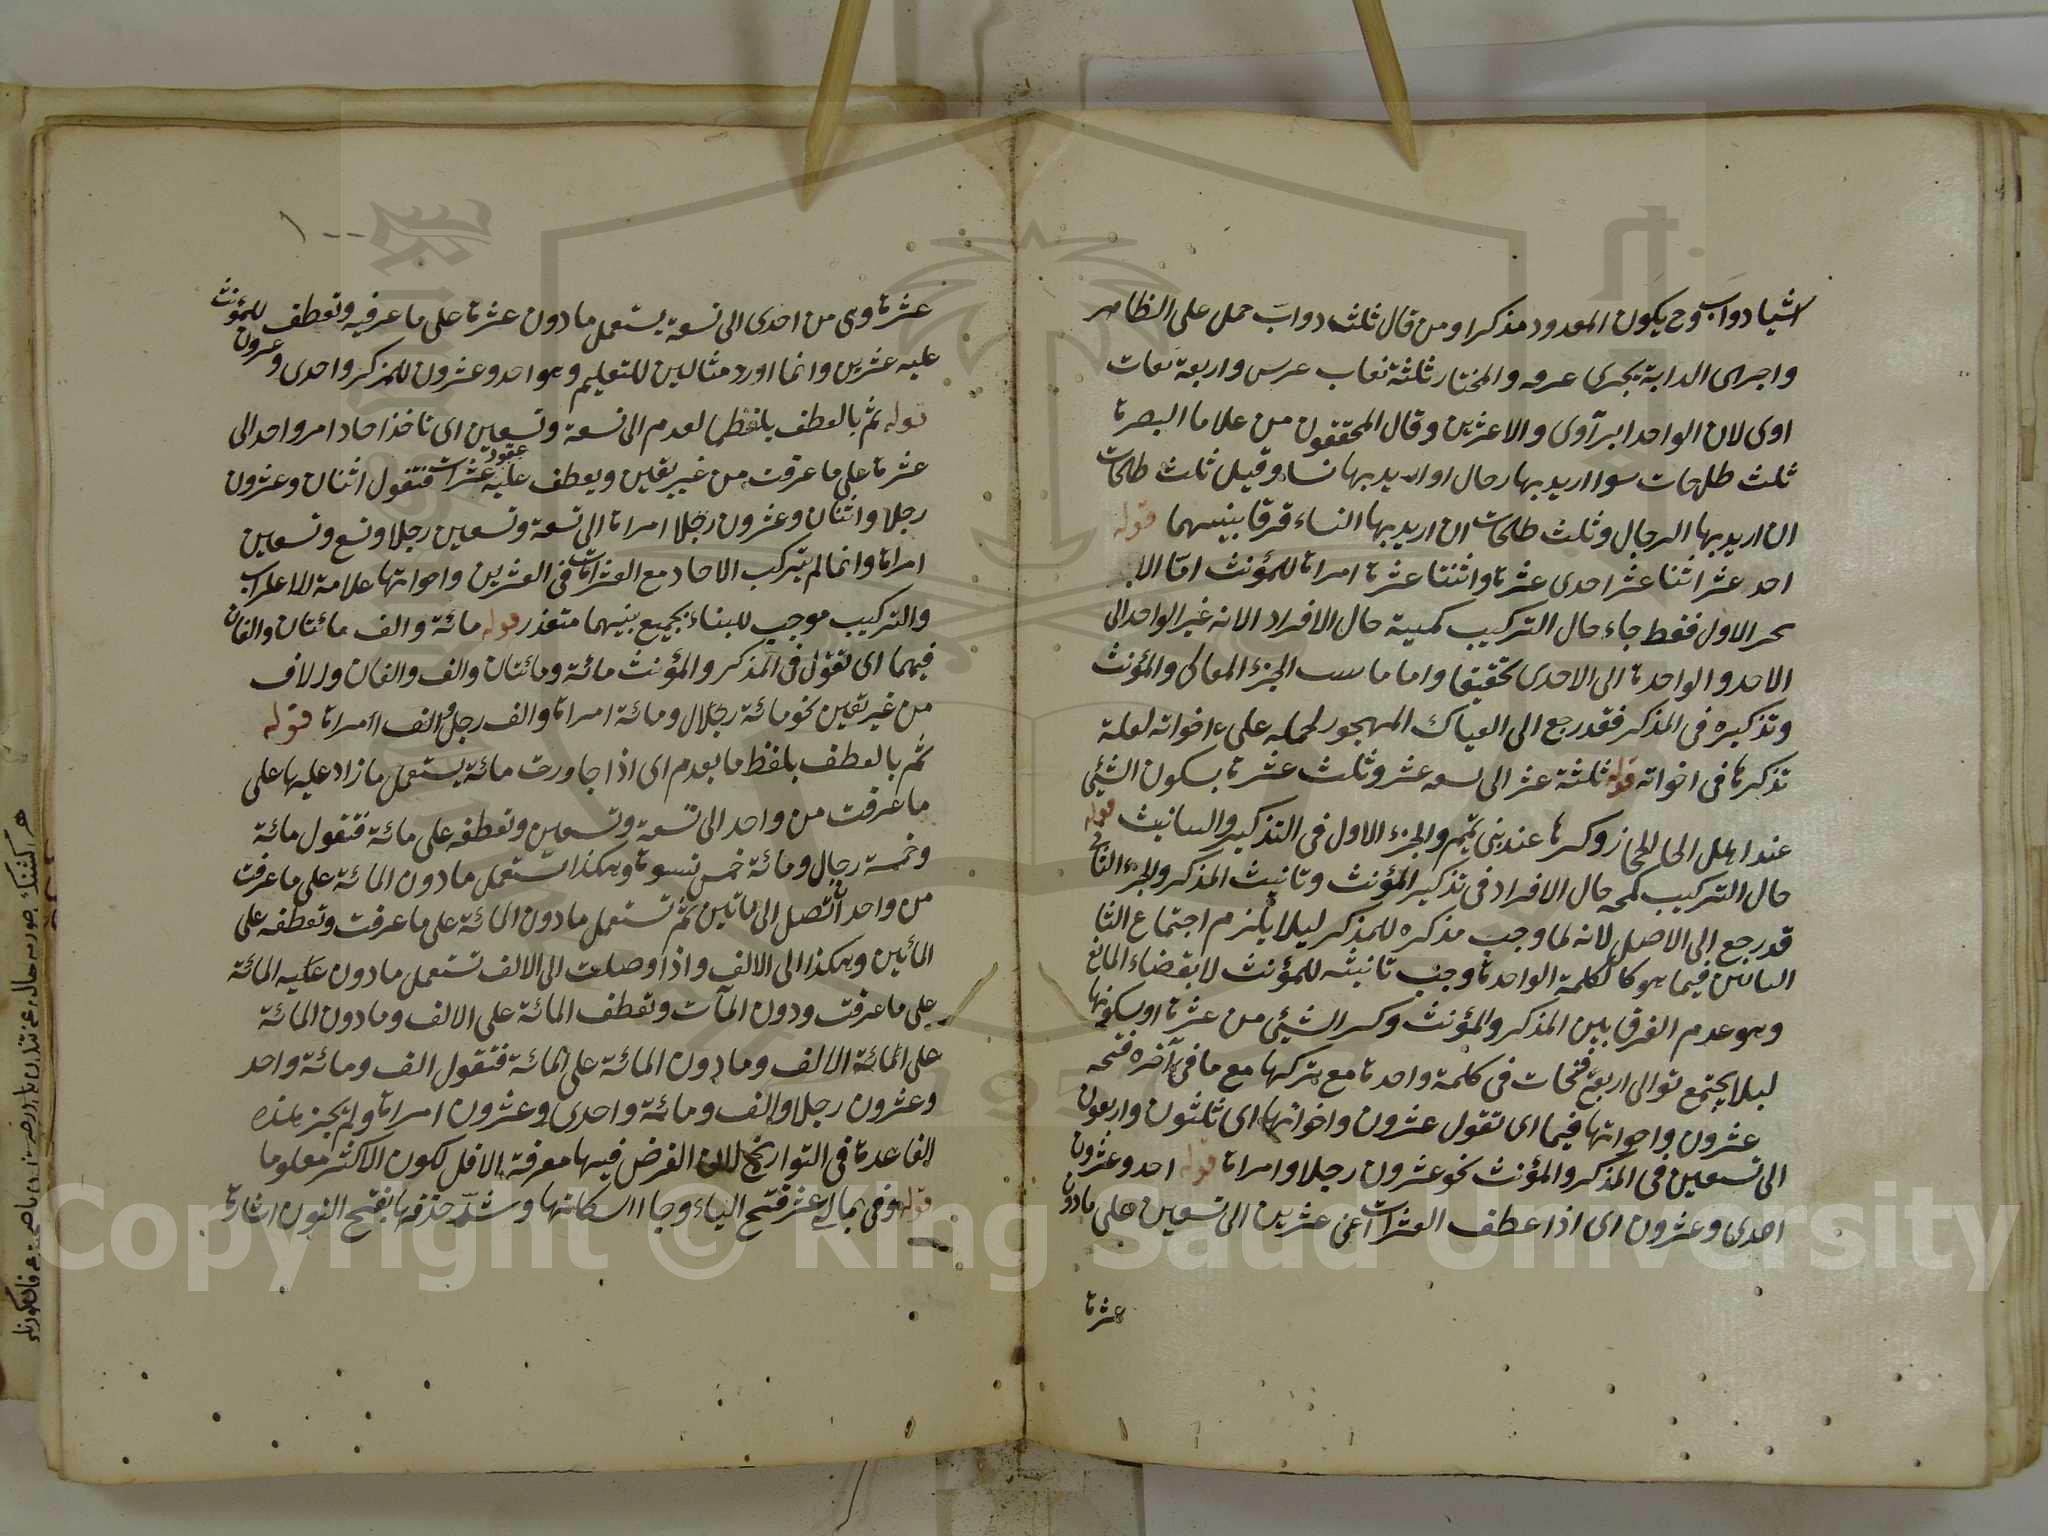 اشياء دواب وح يكون المعدود مذكرا ومن قال ثلث دواب حمل على الظاهر
واجرى الدابة مجرى عرفه والمختار ثلثة نعات عرس واربعة نعات
اوى لان الواحد ابن آوى والاعثرين وقال المحققون من علاما البصرة
ثلث طلحات سوا اريد بها رجال او اريد بها نساء وقيل ثلث طلحات
ان اريد بها الرجال وثلث طلحات ان اريد بها النساء فرقا بينهما قوله
احد عشر اثنا عشر احدى عشرة واثنتا عشرة امراة للمؤنث امّا الا
الاول فقط جاء حال التركيب كهيئة حال الافراد الا انه غير الواحد الى
الاحد والواحدة الى الاحدى تخفيفا واما الجزء والمؤنث
وتذكيره في المذكر فقد رجع الى القياس المهجور لحمله على اخواته لعلة
تذكرة في اخواته قوله ثلثة عشر الى تسعة عشر وثلث عشرة بسكون الشين
عند اهل الحجاز وكسرها عند بني تميم والجزء الاول في التذكير والتانيث قوله
حال التركيب كحه حال الافراد في تذكير المؤنث وتانيث المذكر والجزء الثاني
قد رجع الى الاصل لانه لما وجب مذكره للمذكر ليلا يلزم اجتماع التا
التانيثين فيما هو كالكلمة الواحدة وجب تانيثه للمؤنث لانقضاء المانع
وهو عدم الفرق بين المذكر والمؤنث وكسر الشين من عشرة او بسكونها
ليلا يجتمع توالى اربع فتحات في كلمة واحدة مع تركبها مع ما في آخره فتحه
عشرون واخواتها فيما اى تقول عشرون واخواتها اى ثلثون واربعون
الى تسعين في المذكر والمؤنث نحو عشرون رجلا وامراة قوله احد وعشرون
احدى وعشرون اى اذا عطف العشرات اعنى عشرين الى تسعين على ما دون
عشرة
عشرة وهى من احدى الى تسعة يستعمل ما دون عشرة على ما عرفيه وتعطف للمؤنث
عليه عشرين وانما اورد مثالين للتعليم وهو احد وعشرون للمذكر واحدى وعشرون
قوله ثم بالعطف بلفظ ما تقدم الى تسعة وتسعين اى تاخذ احاد امر واحد الى
عشرة على ما عرفت من غير يقين ويعطف عليه عقود عشرات فتقول اثنان وعشرون
رجلا واثنان وعشرون رجلا امراة الى تسعة وتسعين رجلا وتسع وتسعين
امراة وانما لم يتركب الاحاد مع العشرات في العشرين واخواتها علامة الاعراب
والتركيب موجب للبناء بجميع بينهما متعذر قوله مائة والف مائتان والفان
فيهما اى تقول في المذكر والمؤنث مائة ومائتان والف والفان والاف
من غير تغيير نحو مائة رجلال ومائة امراة والف رجل والف امراة قوله
ثم بالعطف بلفظ ما تقدم اى اذا جاورت مائة يستعمل ما زاد عليها على
ما عرفت من واحد الى تسعة وتسعين وتعطفه على مائة فتقول مائة
وخمسة رجال ومائة خمس نسوة وهكذا تستعمل ما دون المائة على ما عرفت
من واحد اتصل الى مائتين ثم تستعمل ما دون المائة على ما عرفت وتعطفه على
المائين وهكذا الى الالف واذا وصلت الى الالف تستعمل ما دون عليه المائة
على ما عرفت ودون المآت وتعطف المائة على الالف وما دون المائة
على المائة الالف وما دون المائة على المائة فتقول الف ومائة واحد
وعشرون رجلا والف ومائة واحدى وعشرون امراة ولم يجز هذه
القاعدة في التواريخ لان الغرض فيها معرفة الاقل لكون الاكثر معلوما
قوله وفى ثمانى عشر فتح الياء وجا اسكانها وشذّ حذفها بفتح النون اشارة
Copyright © King Saud University
1957